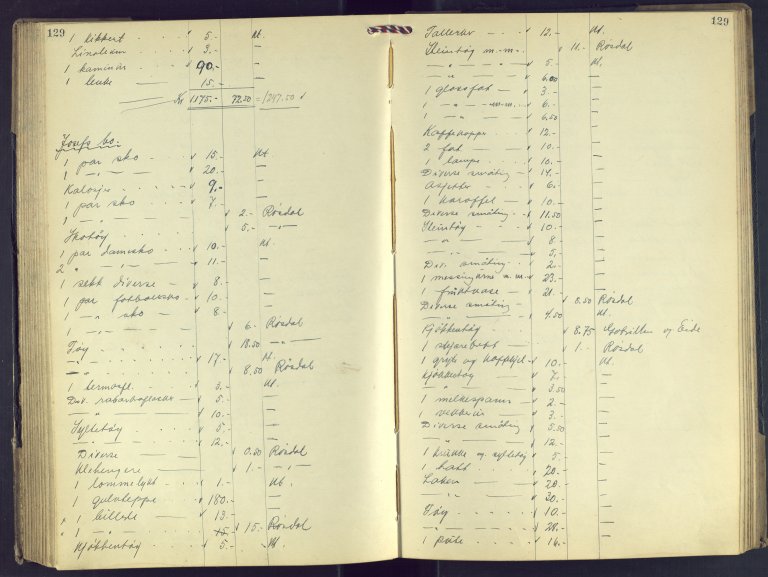 129
1 kikkert " 5.- Ut.
Linoleum " 3.- —
1 kaminur 90.- —
1 15.- —
Kr 1175.- 72.50 = 1247.50
Josefs bo.
1 par sko 15.- Ut
1 — " — 20.- —
Kalosjer 9.- —
1 par sko 7.- —
1 " 2.- Røsdal
5.- — " —
Skotøy Ut.
1 par damesko 10.- —
2 " 11.- —
1 sekk diverse 8.- —
1 par fotballsko 10.- —
1 — " — sko 8.- —
1 — " — 6.- Røsdal
Tøy 18.50 — " —
— " — 17.- Ut.
— " — 8.50 Røsdal
1 termosfl. 3.- Ut.
Div. rabarbraflasker 5.- —
— " — 10.- —
Syltetøy 5.- —
— " — 12.- —
Diverse 0.50 Røsdal
1.- — " —
1 lommelykt 1.- Ut.
1 gulvteppe 180.- —
1 billede 13.- —
1 — " — 15.- 15.- Røsdal
Kjøkkentøy 5.- Ut
129
Tallerker 12.- Ut.
Steintøy m.m. 11.- Røsdal
— " — 5.- Ut.
— " — 6.00 —
1 glassfat 3.- —
1 — " — m.m. 6.- —
1 — " — 6.50 —
Kaffekopper 12.- —
2 fat 10.- —
1 lampe 10.- —
Diverse småting 14.- —
Asjetter 6.- —
1 karaffel 10.- —
Diverse småting 11.50 —
Steintøy 10.- —
— " — 8 —
— " — 5.- —
Div. småting 2.- —
1 m.m. 23.- —
1 fruktvase 21.- —
Diverse småting 0.50 Røsdal
— " — 4.50 Ut.
Kjøkkentøy 8.75 og Eide
1 skjærebrett 1.- Røsdal
1 gryte og kaffekjel 10.- Ut.
Kjøkkentøy 7.- —
— " — 3.50 —
1 melkespann 2.- —
1 vekkerur 3.- —
Diverse småting 5.50 —
— " — 12.- —
1 krukke og syltetøy 5.- —
1 hatt 20.- —
Laken 28.- —
— " — 30.- —
Tøy 10.- —
— " — 28.- —
1 pute 16.- —